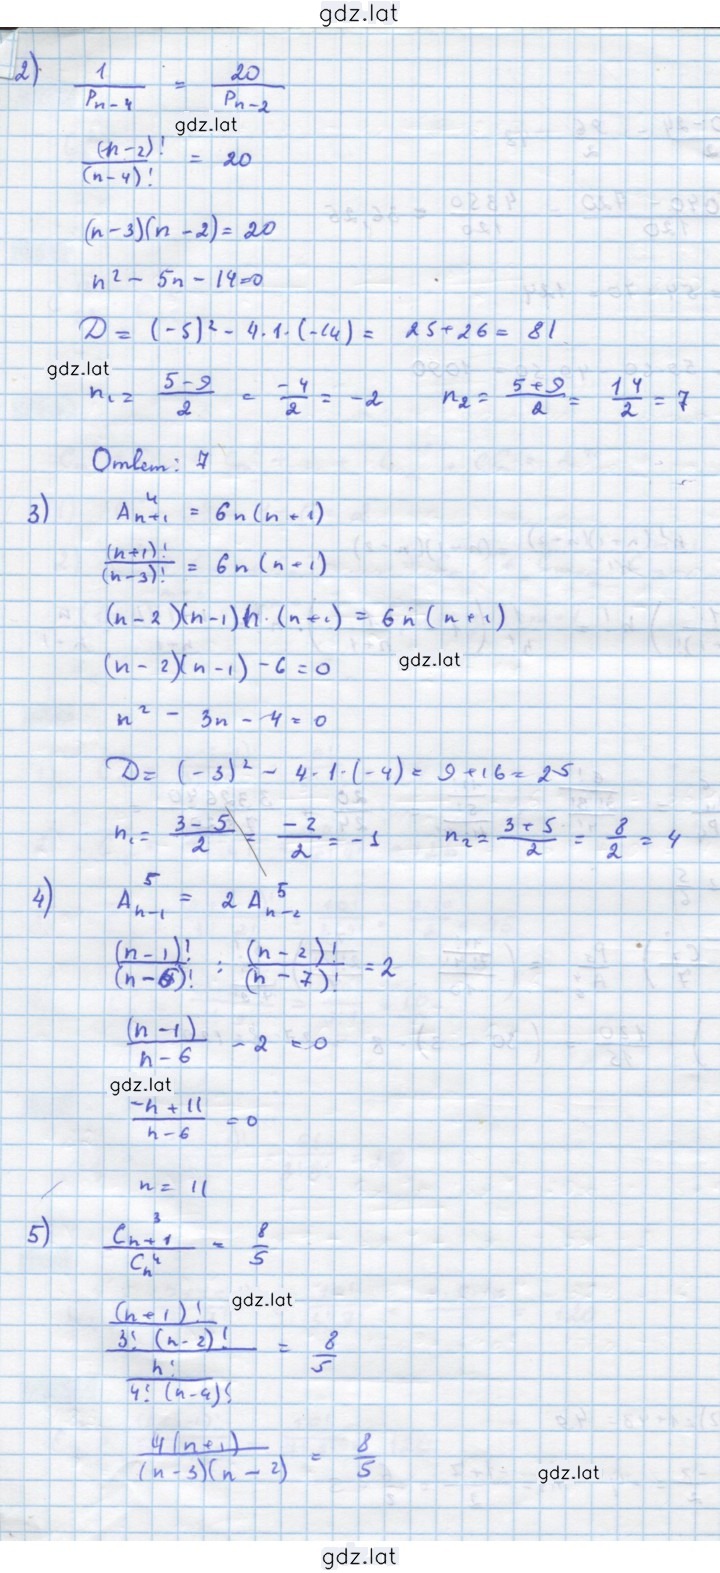 gdz.lat
2) 1/P_{n-4} = 20/P_{n-2}
gdz.lat
(n-2)!/(n-4)! = 20
(n-3)(n-2) = 20
n² - 5n - 14 = 0
D = (-5)² - 4·1·(-14) = 25+26 = 81
gdz.lat
n₁ = (5-9)/2 = -4/2 = -2 n₂ = (5+9)/2 = 14/2 = 7
Ответ: 7
3) A_{n+1}^4 = 6n(n+1)
(n+1)!/(n-3)! = 6n(n+1)
(n-2)(n-1)n·(n+1) = 6n(n+1)
(n-2)(n-1) - 6 = 0
gdz.lat
n² - 3n - 4 = 0
D = (-3)² - 4·1·(-4) = 9+16 = 25
n₁ = (3-5)/2 = -2/2 = -1 n₂ = (3+5)/2 = 8/2 = 4
4) A_{n-1}^5 = 2A_{n-2}^5
(n-1)!/(n-6)! : (n-2)!/(n-7)! = 2
(n-1)/(n-6) - 2 = 0
gdz.lat
(-n+11)/(n-6) = 0
n = 11
5) C_{n+1}^3/C_n^4 = 8/5
gdz.lat
((n+1)!/(3!(n-2)!))/(n!/(4!(n-4)!)) = 8/5
4(n+1)/((n-3)(n-2)) = 8/5
gdz.lat
gdz.lat